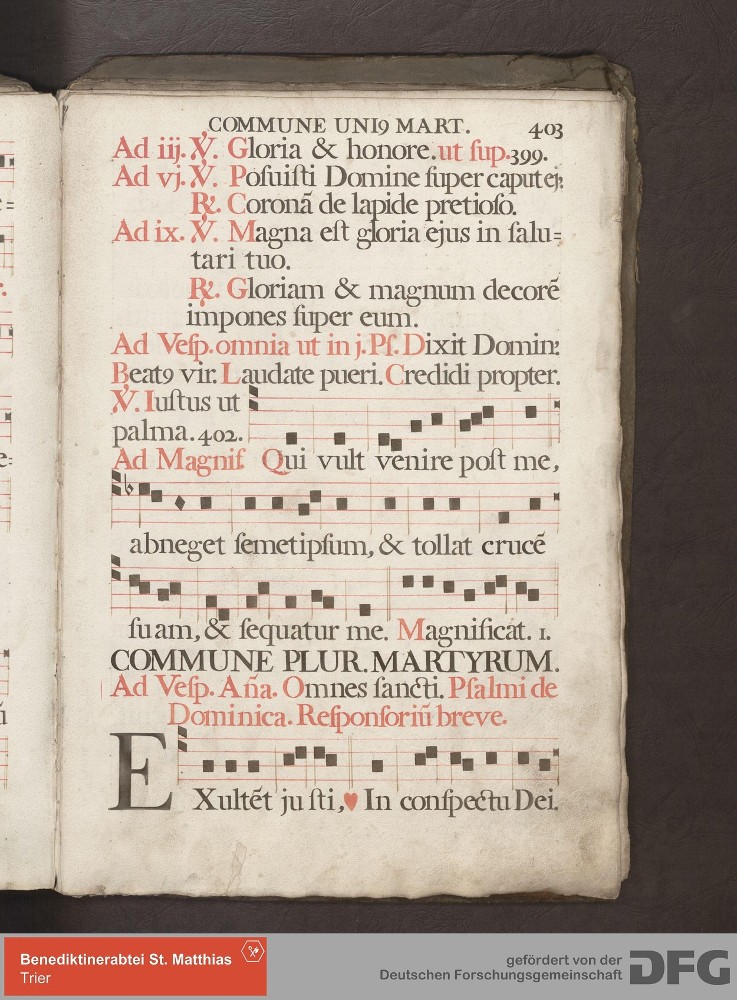 COMMUNE UNI9 MART. 403
Ad iij. ℣. Gloria & honore. ut sup. 399.
Ad vj. ℣. Posuisti Domine super caput ej:
℟. Coronã de lapide pretioso.
Ad ix. ℣. Magna est gloria ejus in salu=
tari tuo.
℟. Gloriam & magnum decorẽ
impones super eum.
Ad Vesp. omnia ut in j. Ps. Dixit Domin:
Beat9 vir. Laudate pueri. Credidi propter.
℣. Iustus ut
palma. 402.
Ad Magnif. Qui vult venire post me,
abneget semetipsum, & tollat crucẽ
suam, & sequatur me. Magnificat. 1.
COMMUNE PLUR. MARTYRUM.
Ad Vesp. Aña. Omnes sancti. Psalmi de
Dominica. Responsoriũ breve.
EXultẽt justi, In conspectu Dei.
Benediktinerabtei St. Matthias
Trier
gefördert von der
Deutschen Forschungsgemeinschaft
DFG